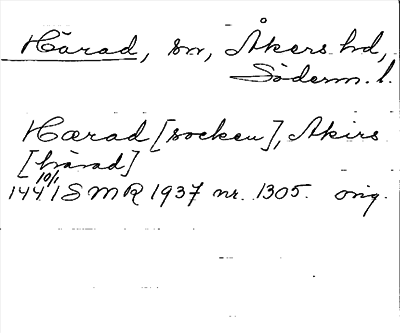 Härad, sn, Åkers hd,
Söderm. l.
Hærad [socken], Akirs
[härad]
144 10/1 1 SMR 1937 nr. 1305. orig.